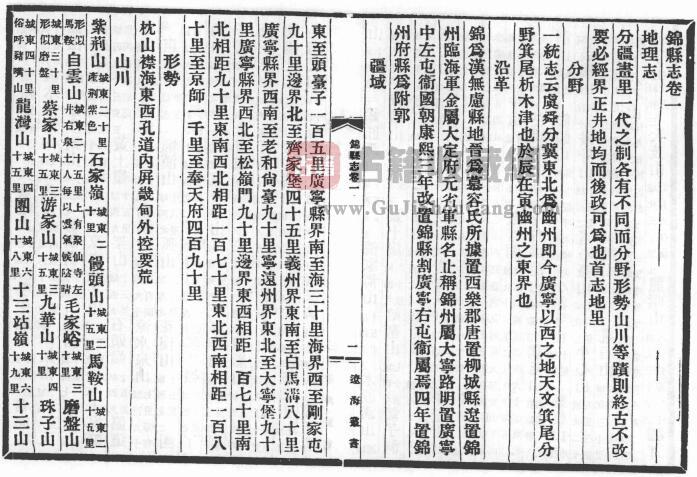 錦縣志卷一
地理志
分疆畫里一代之制各有不同而分野形勢山川等蹟則終古不改
要必經界正井地均而後政可為也首志地里
分野
一統志云虞舜分冀東北為幽州即今廣寧以西之地天文箕尾分
野箕尾析木津也於辰在寅幽州之東界也
沿革
錦縣為漢無慮縣地晉為慕容氏所據置西樂郡唐置柳城縣遼置錦
州臨海軍金屬大定府元省軍縣名止稱錦州屬大寧路明置廣寧
中左屯衞國朝康熙元年改置錦縣割廣寧右屯衞屬焉四年置錦
州府縣為附郭
疆域
錦縣志卷一
一
遼海叢書
東至頭臺子一百五里廣寧縣界南至海三十里海界西至剛家屯
九十里邊界北至齊家堡四十五里義州界東南至白馬溝八十里
廣寧縣界西南至老和尙臺九十里寧遠州界東北至大寧堡九十
里廣寧縣界西北至松嶺門九十里邊界東西相距一百七十里南
北相距九十里東南西北相距一百七十里東北西南相距一百八
十里至京師一千里至奉天府四百九十里
形勢
枕山襟海東西孔道內屏畿甸外控要荒
山川
紫荆山城東二十里產荆紫色石家嶺城東二十里饅頭山城東二十五里馬鞍山城東二十五里
形似馬鞍白雲山城東二十五里上有聚仙寺左井右泉土人每以雲氣候陰晴毛家峪城東三十里磨盤山
城東三十里形似磨盤蔡家山城東三十五里游家山城東三十五里九華山城東四十里珠子山
城東四十里俗呼豬嘴山龍灣山城東四十五里團山城東六十八里十三站嶺城東六十九里十三山